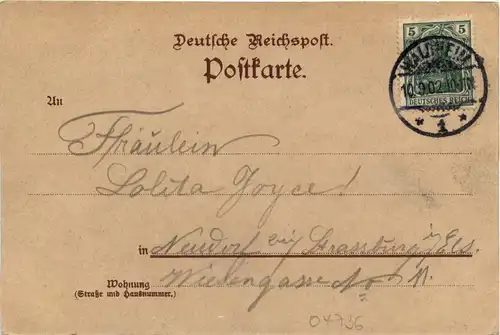 Deutsche Reichspost.
Postkarte.
5 5
WALDHEIM
10.9.02.
DEUTSCHES REICH
* 1 *
An
Fräulein
Lolita Joyce!
in Neudorf bei Strassburg i/Els.
Wohnung Wiesengasse No 11.
(Straße und Hausnummer.)
04736